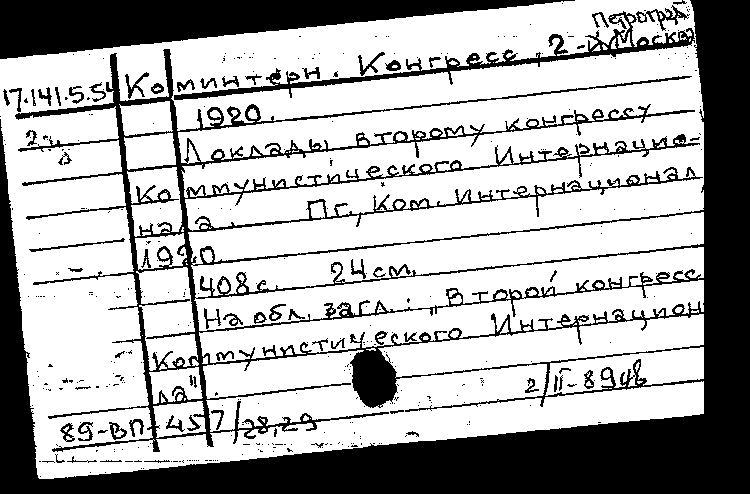 Петроград
17.141.5.54 Коминтерн. Конгресс, 2-й Москва
1920.
2ч. Доклады второму конгрессу
Коммунистического Интернацио-
нала. Пг., Ком. Интернационал,
1920
408с. 24см.
На обл. загл.: „Второй конгресс
Коммунистического Интернацион
ла".
2/II-89
89-ВП-457/28,29